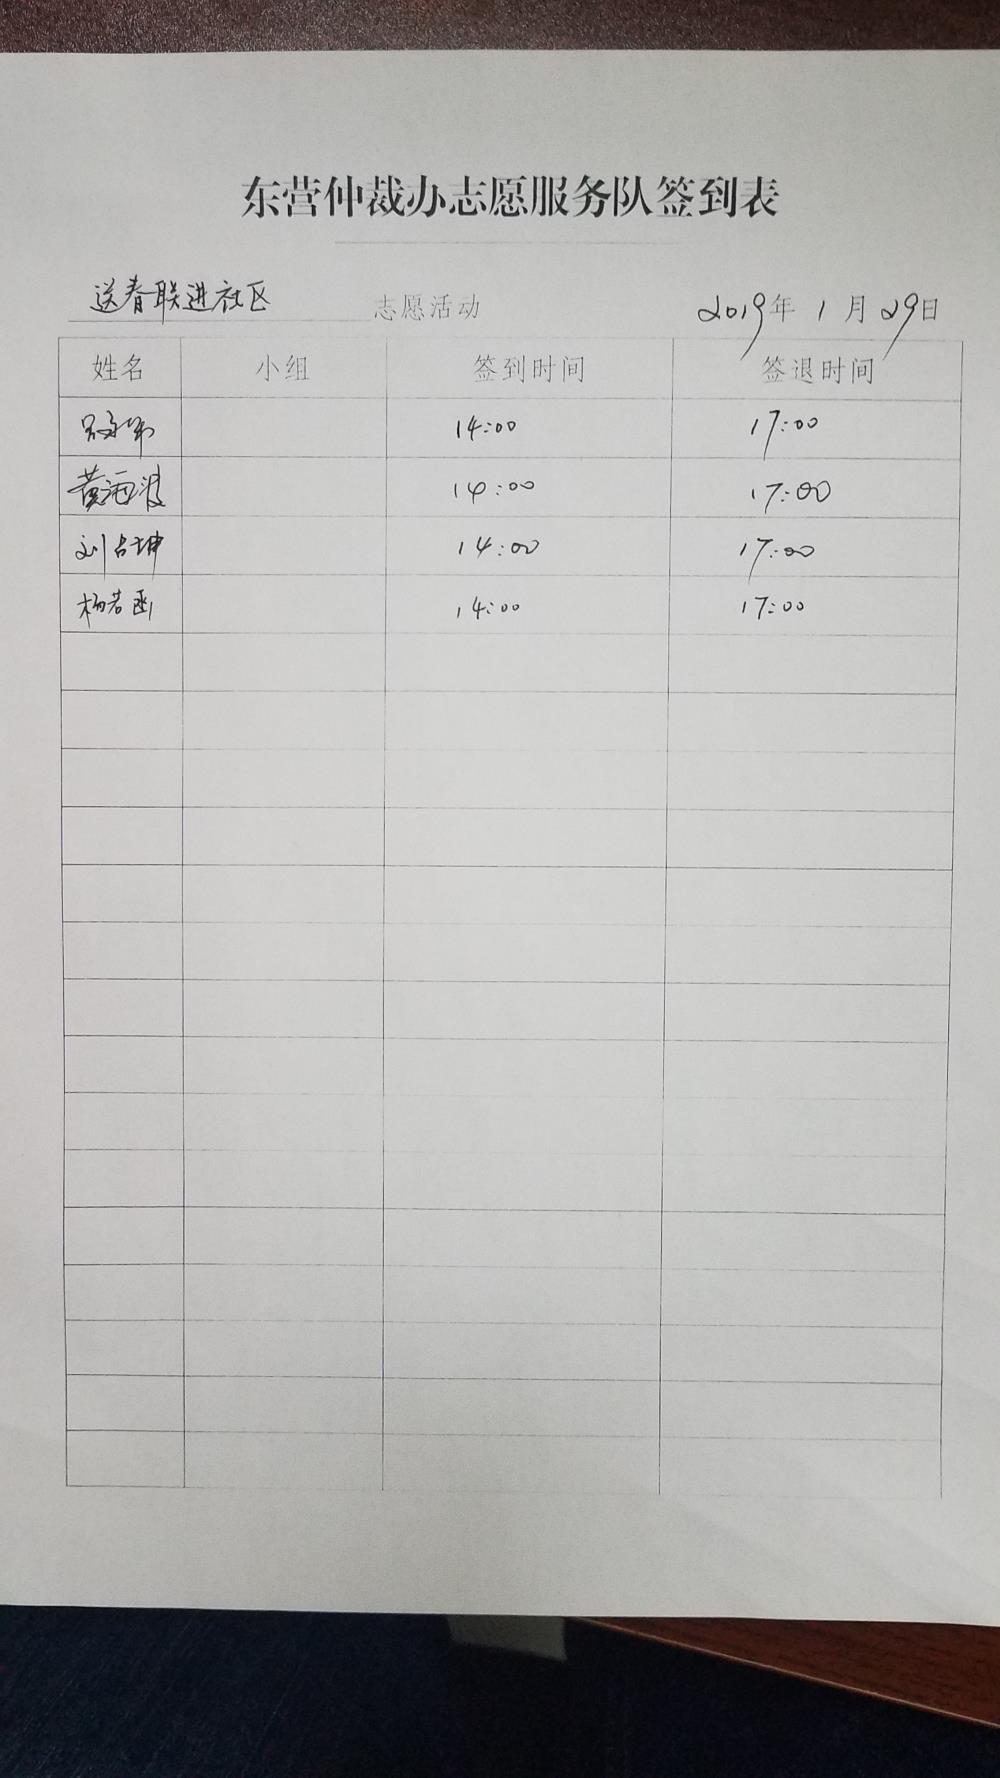 东营仲裁办志愿服务队签到表
送春联进社区 志愿活动 2019年 1月29日
姓名 小组 签到时间 签退时间
14:00 17:00
黄海波 14:00 17:00
刘占坤 14:00 17:00
杨若函 14:00 17:00